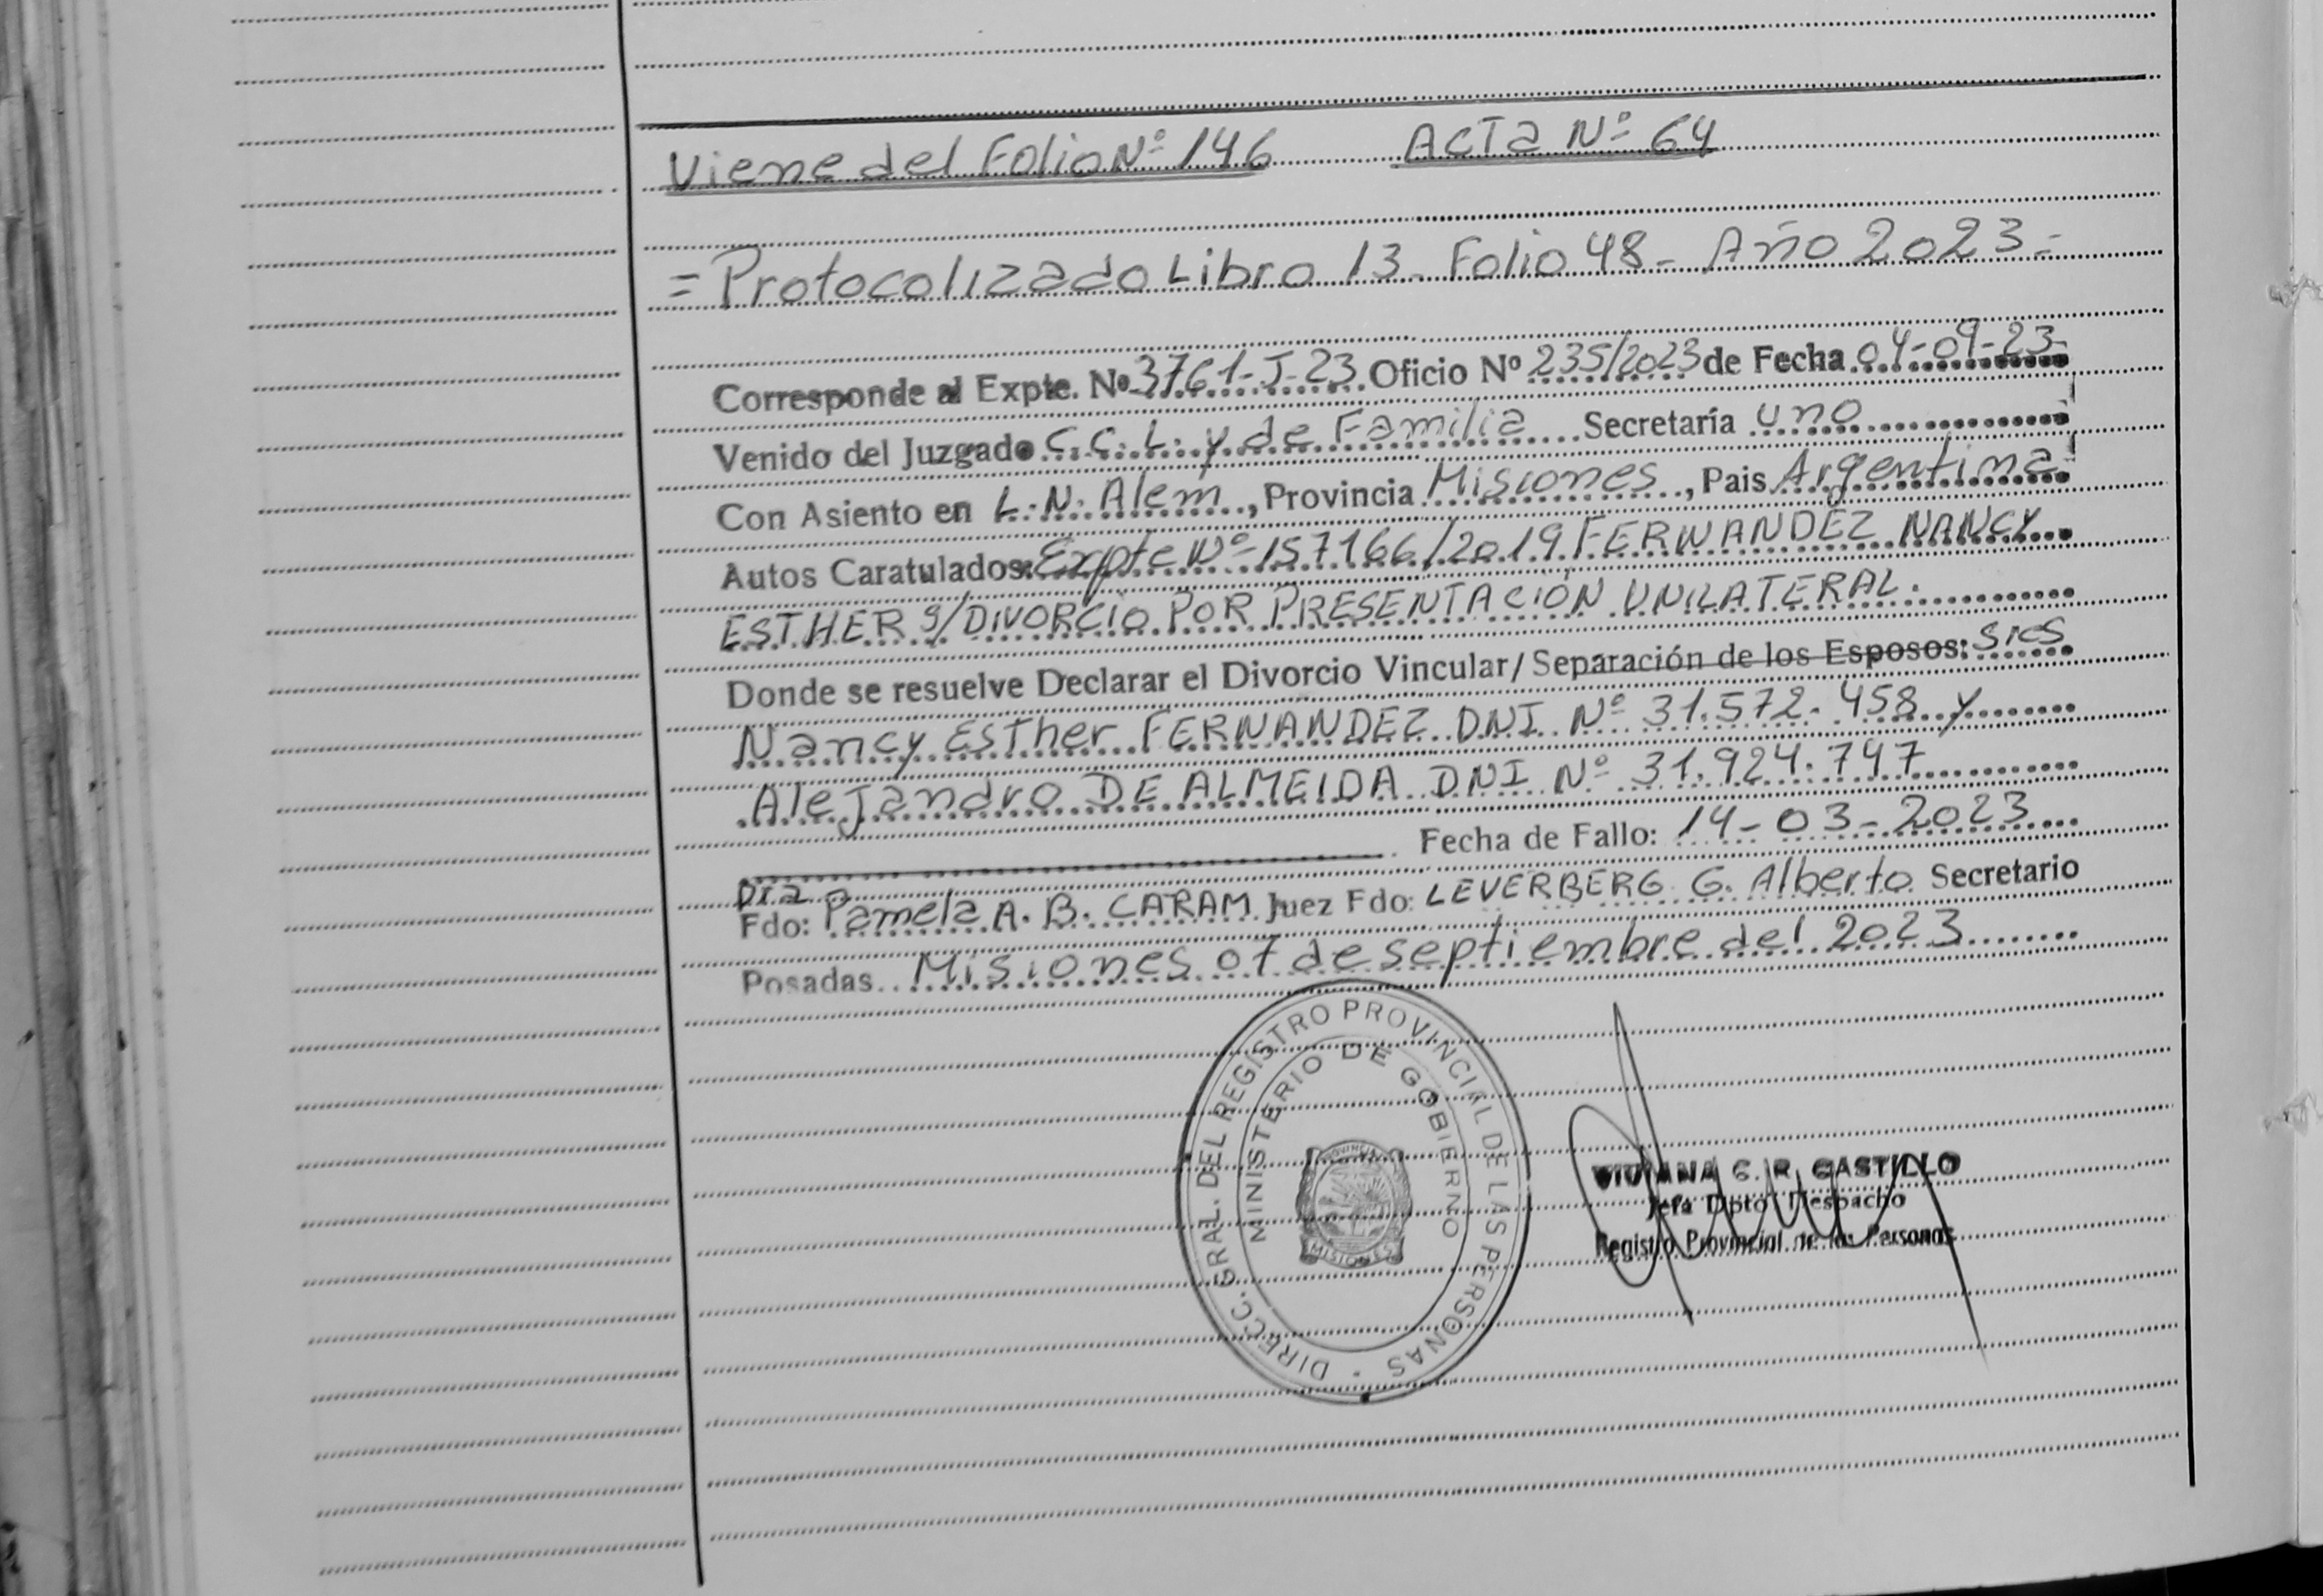 Viene del Folio Nº 146 Acta Nº 64
= Protocolizado Libro 13 - Folio 48 - Año 2023 =
Corresponde al Expte. Nº 3761-J-23 Oficio Nº 235/2023 de Fecha 04-09-23-
Venido del Juzgado C.C.L. y de Familia Secretaría uno
Con Asiento en L.N. Alem, Provincia Misiones, Pais Argentina
Autos Caratulados: Expte Nº 157166/2019 FERNANDEZ NANCY
ESTHER S/DIVORCIO POR PRESENTACIÓN UNILATERAL.
Donde se resuelve Declarar el Divorcio Vincular/Separación de los Esposos: sres
Nancy Esther FERNANDEZ DNI Nº 31.572.458 y
Alejandro DE ALMEIDA DNI Nº 31.924.747
Fecha de Fallo: 14-03-2023
Dra
Fdo: Pamela A. B. CARAM Juez Fdo: LEVERBERG G. Alberto Secretario
Posadas Misiones 07 de septiembre del 2023
DIRECC. GRAL. DEL REGISTRO PROVINCIAL DE LAS PERSONAS -
MINISTERIO DE GOBIERNO
PROVINCIA
MISIONES
VIVIANA G. R. CASTILLO
Jefa Dpto Despacho
Registro Provincial de las Personas